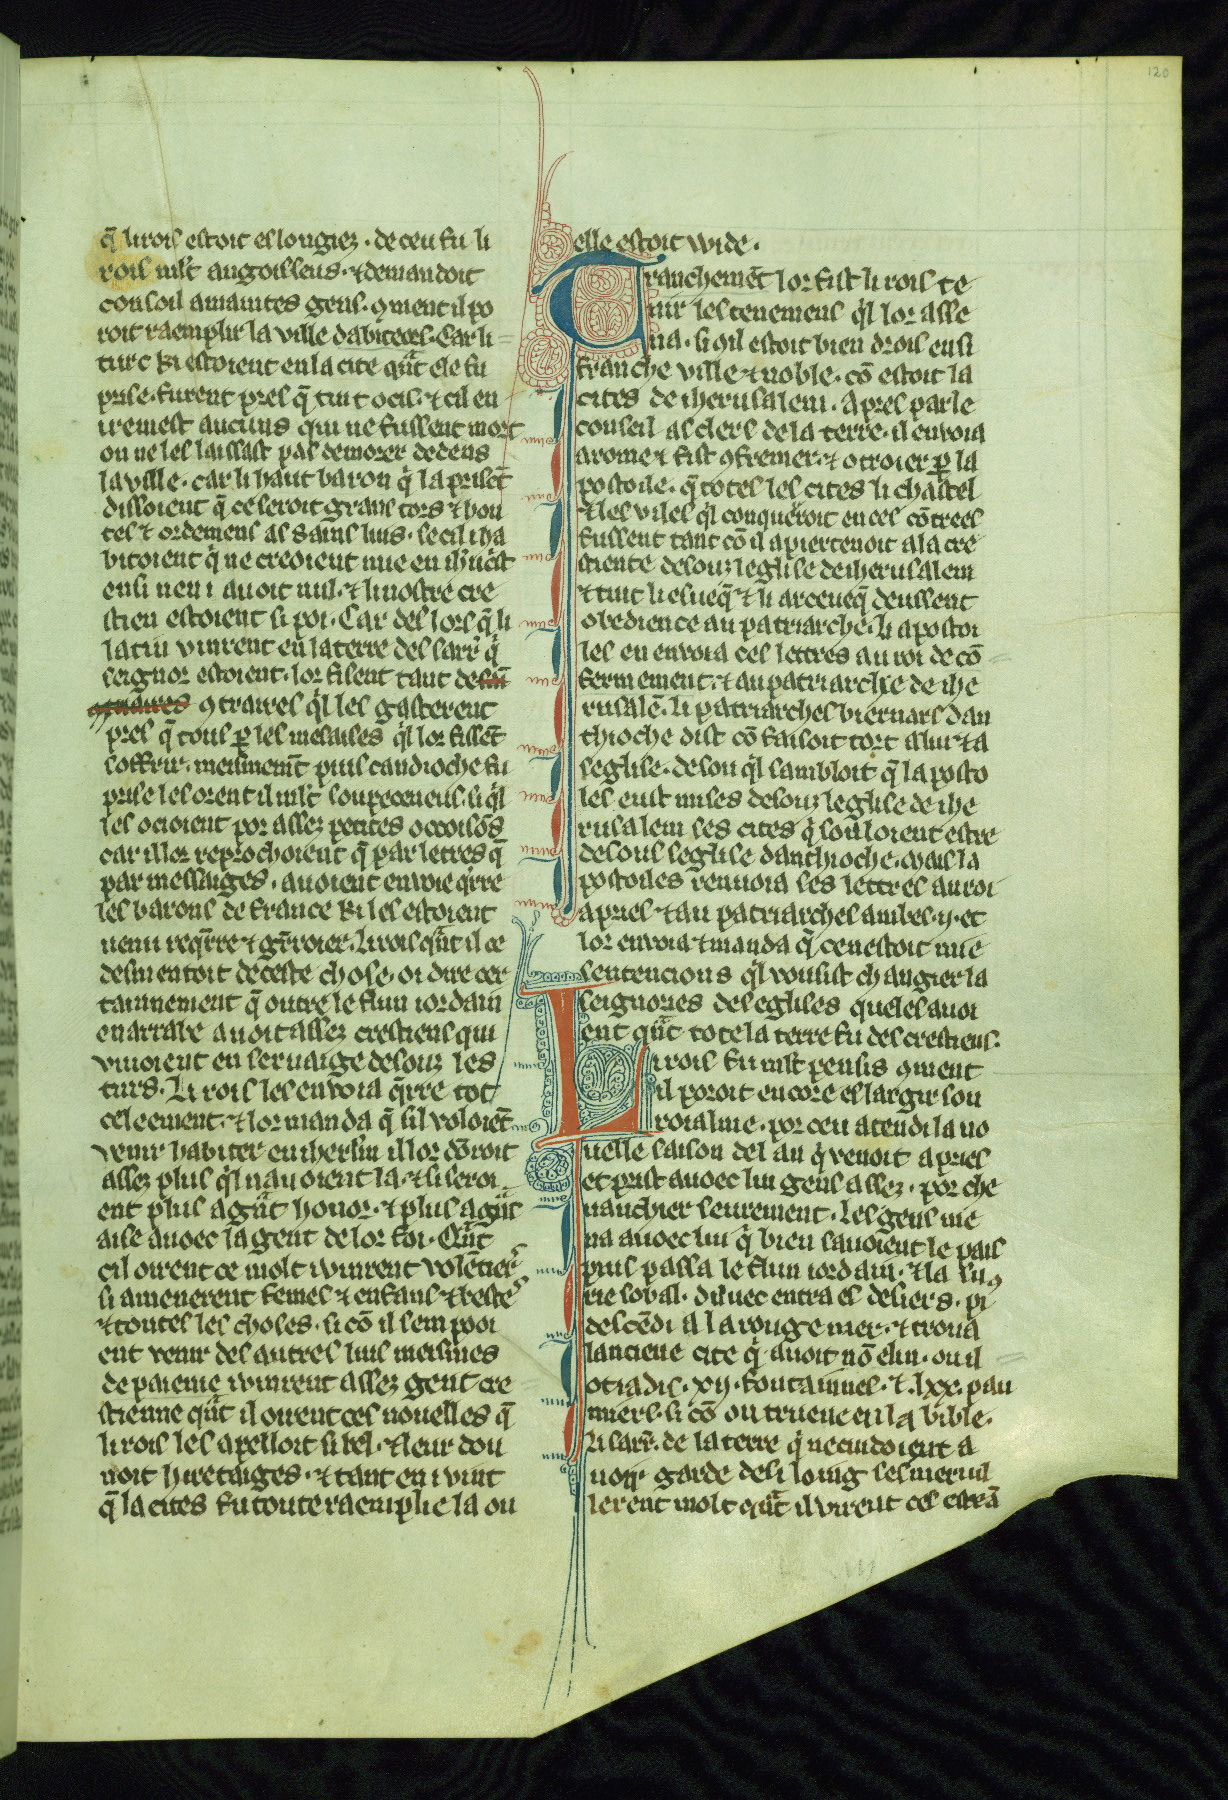 q̃ li rois estoit eslongiez . de ceu fu li
rois ml't angoisseus . ⁊ demandoit
consoil a maintes gens . 9ment il po
roit raemplir la ville dabiteors . Car li
turc ki estoient en la cite qãt ele fu
prise . furent pres q̃ tuit ocis . ⁊ cil en
iremest aucuns qui ne fussent mort
on ne les laissast pas demorer dedens
la ville . car li haut baron q̃ la prisẽt
dissoient q̃ ce seroit grans tors ⁊ hon
tes ⁊ ordemens as sains lius . se cil i ha
bitoient q̃ ne creoient mie en ih'ucst
ensi nen i avoit nul . ⁊ li nostre cre
stien estoient si poi . Car des lors q̃ li
latin vinrent en la terre des sarr̃ q̃
seignor estoient . lor fisent tant de
9traires q̃l les gasterent
pres q̃ tous p̱ les mesaises q̃l lor fissẽt
soffrir . meismem̃t puis candioche fu
prise les orent il ml't soupeceneus . si q̃l
les ocioient por assez petites occoisõs
car il lor reprochoient q̃ par letres q̃
par messaiges . avoient envoie q̃rre
les barons de france ki les estoient
venu req̃rre ⁊ g̃rroier . Li rois qãt il ce
desmentoit de ceste chose . oi dire cer
tainnement q̃ outre le flun iordain
en arrabe avoit assez crestiens qui
vivoient en servaige desouz les
turs . Li rois les envoia q̃rre tot
celeement . ⁊ lor manda q̃ sil voloiẽt
venir habiter en iherl'm il lor dõroit
assez plus q̃l navoient la . ⁊ si seroi
ent plus a gãt honor . ⁊ plus a gãt
aise avoec la gent de lor foi . Qãt
cil oirent ce molt i vinrent volẽtiers
si amenerent femes ⁊ enfans ⁊ bestes
⁊ toutes les choses . si cõ il sem pooi
ent venir des autres lius meismes
de paienie i vinrent assez gent cre
stienne qãt il oirent ces novelles q̃
li rois les apelloit si bel . ⁊ leur don
noit hiretaiges . ⁊ tant en i vint
q̃ la cites fu toute raemplie la ou
elle estoit wide .
Franchemẽt lor fist li rois te
nir les tenemens q̃l lor asse
na . si 9 il estoit bien drois en si
franche ville ⁊ noble . cõ estoit la
cites de iherusalem . Apres par le
conseil as clers de la terre . il envoia
a rome ⁊ fist 9fremer . ⁊ otroier p̱ la
postoile . q̃ totes les cites li chastel
⁊ les viles q̃l conqueroit en ces cõtrees
fussent tant cõ il apiertenoit a la cre
stiente desouz leglise de iherusalem
⁊ tuit li esveq̃ ⁊ li arceveq̃ deussent
obedience au patriarche . li apostoi
les en envoia ces lettres au roi de cõ
fermement . ⁊ au patriarche de ihe
rusalẽ . li patriarches biernars dan
thioche dist cõ faisoit tort a lui ⁊ a
seglise . de son q̃l sambloit q̃ la posto
les eust mises desouz leglise de ihe
rusalem ses cites q̃ souloient estre
desous seglise danthioche . mais la
postoiles renvoia ses lettres au roi
apries ⁊ au patriarches ambes . ij . et
lor envoia ⁊ manda q̃ ce nestoit mie
sentencions q̃l vousist changier la
seignories des eglises queles avoi
ent qãt tote la terre fu des crestiens .
Li rois fu ml't pensis 9ment
il poroit encore eslargir son
roialme . por ceu atendi la no
uelle saison del an q̃ venoit apries
et prist avoec lui gens assez . por che
vauchier seurement . Les gens me
na avoec lui q̃ bien savoient le pais
puis passa le flun iordain . ⁊ la su
rie sobal . Diluec entra es desiers . pi
descẽdi a la rouge mer . ⁊ trova
lanciene cite q̃ avoit nõ elin . ou il
ot iadis . xij . fontainnes . ⁊ . lxx . pau
miers . si cõ ou trueve en la bible .
Li sarr̃ . de la terre q̃ ne cuidoient a
voir garde de si loing sesmervil
lerent molt qãt il virent ces estrã
120